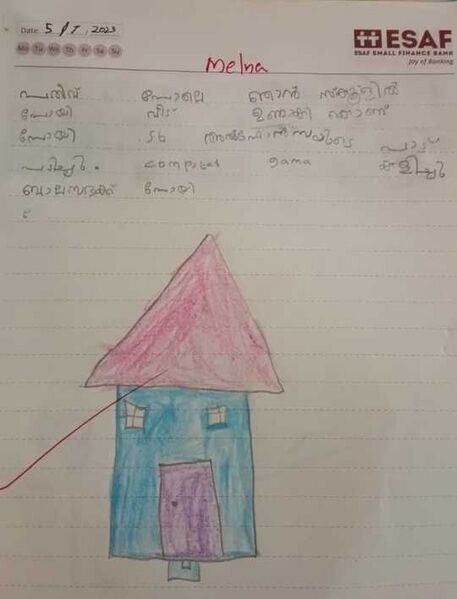 Date: 5/7, 2023
Mo Tu We Th Fr Sa Su
ESAF
ESAF SMALL FINANCE BANK
Joy of Banking
Melna
പതിവ് പോലെ ഞാൻ സ്കൂളിൽ
പോയി വീട്
പോയി 5b പാട്
പടിച്ചു. computer gama കളിച്ചു
ബാലസഭക്ക് പോയി